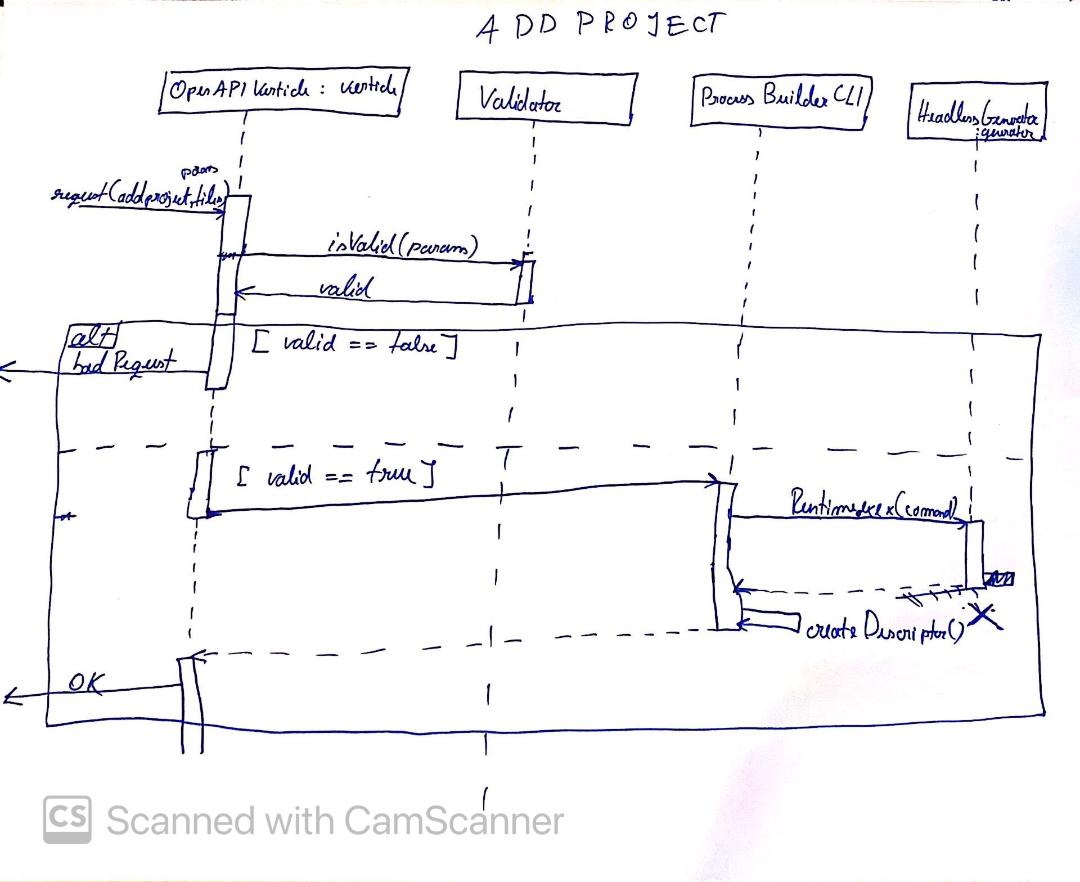 ADD PROJECT
OpenAPI Verticle : verticle
Validator
Process Builder CLI
Headless Generator
: generator
params
request(addproject, files)
isValid(params)
valid
alt
[ valid == false ]
bad Request
[ valid == true ]
Runtime.exex(comand)
createDescriptor()
OK
CS Scanned with CamScanner